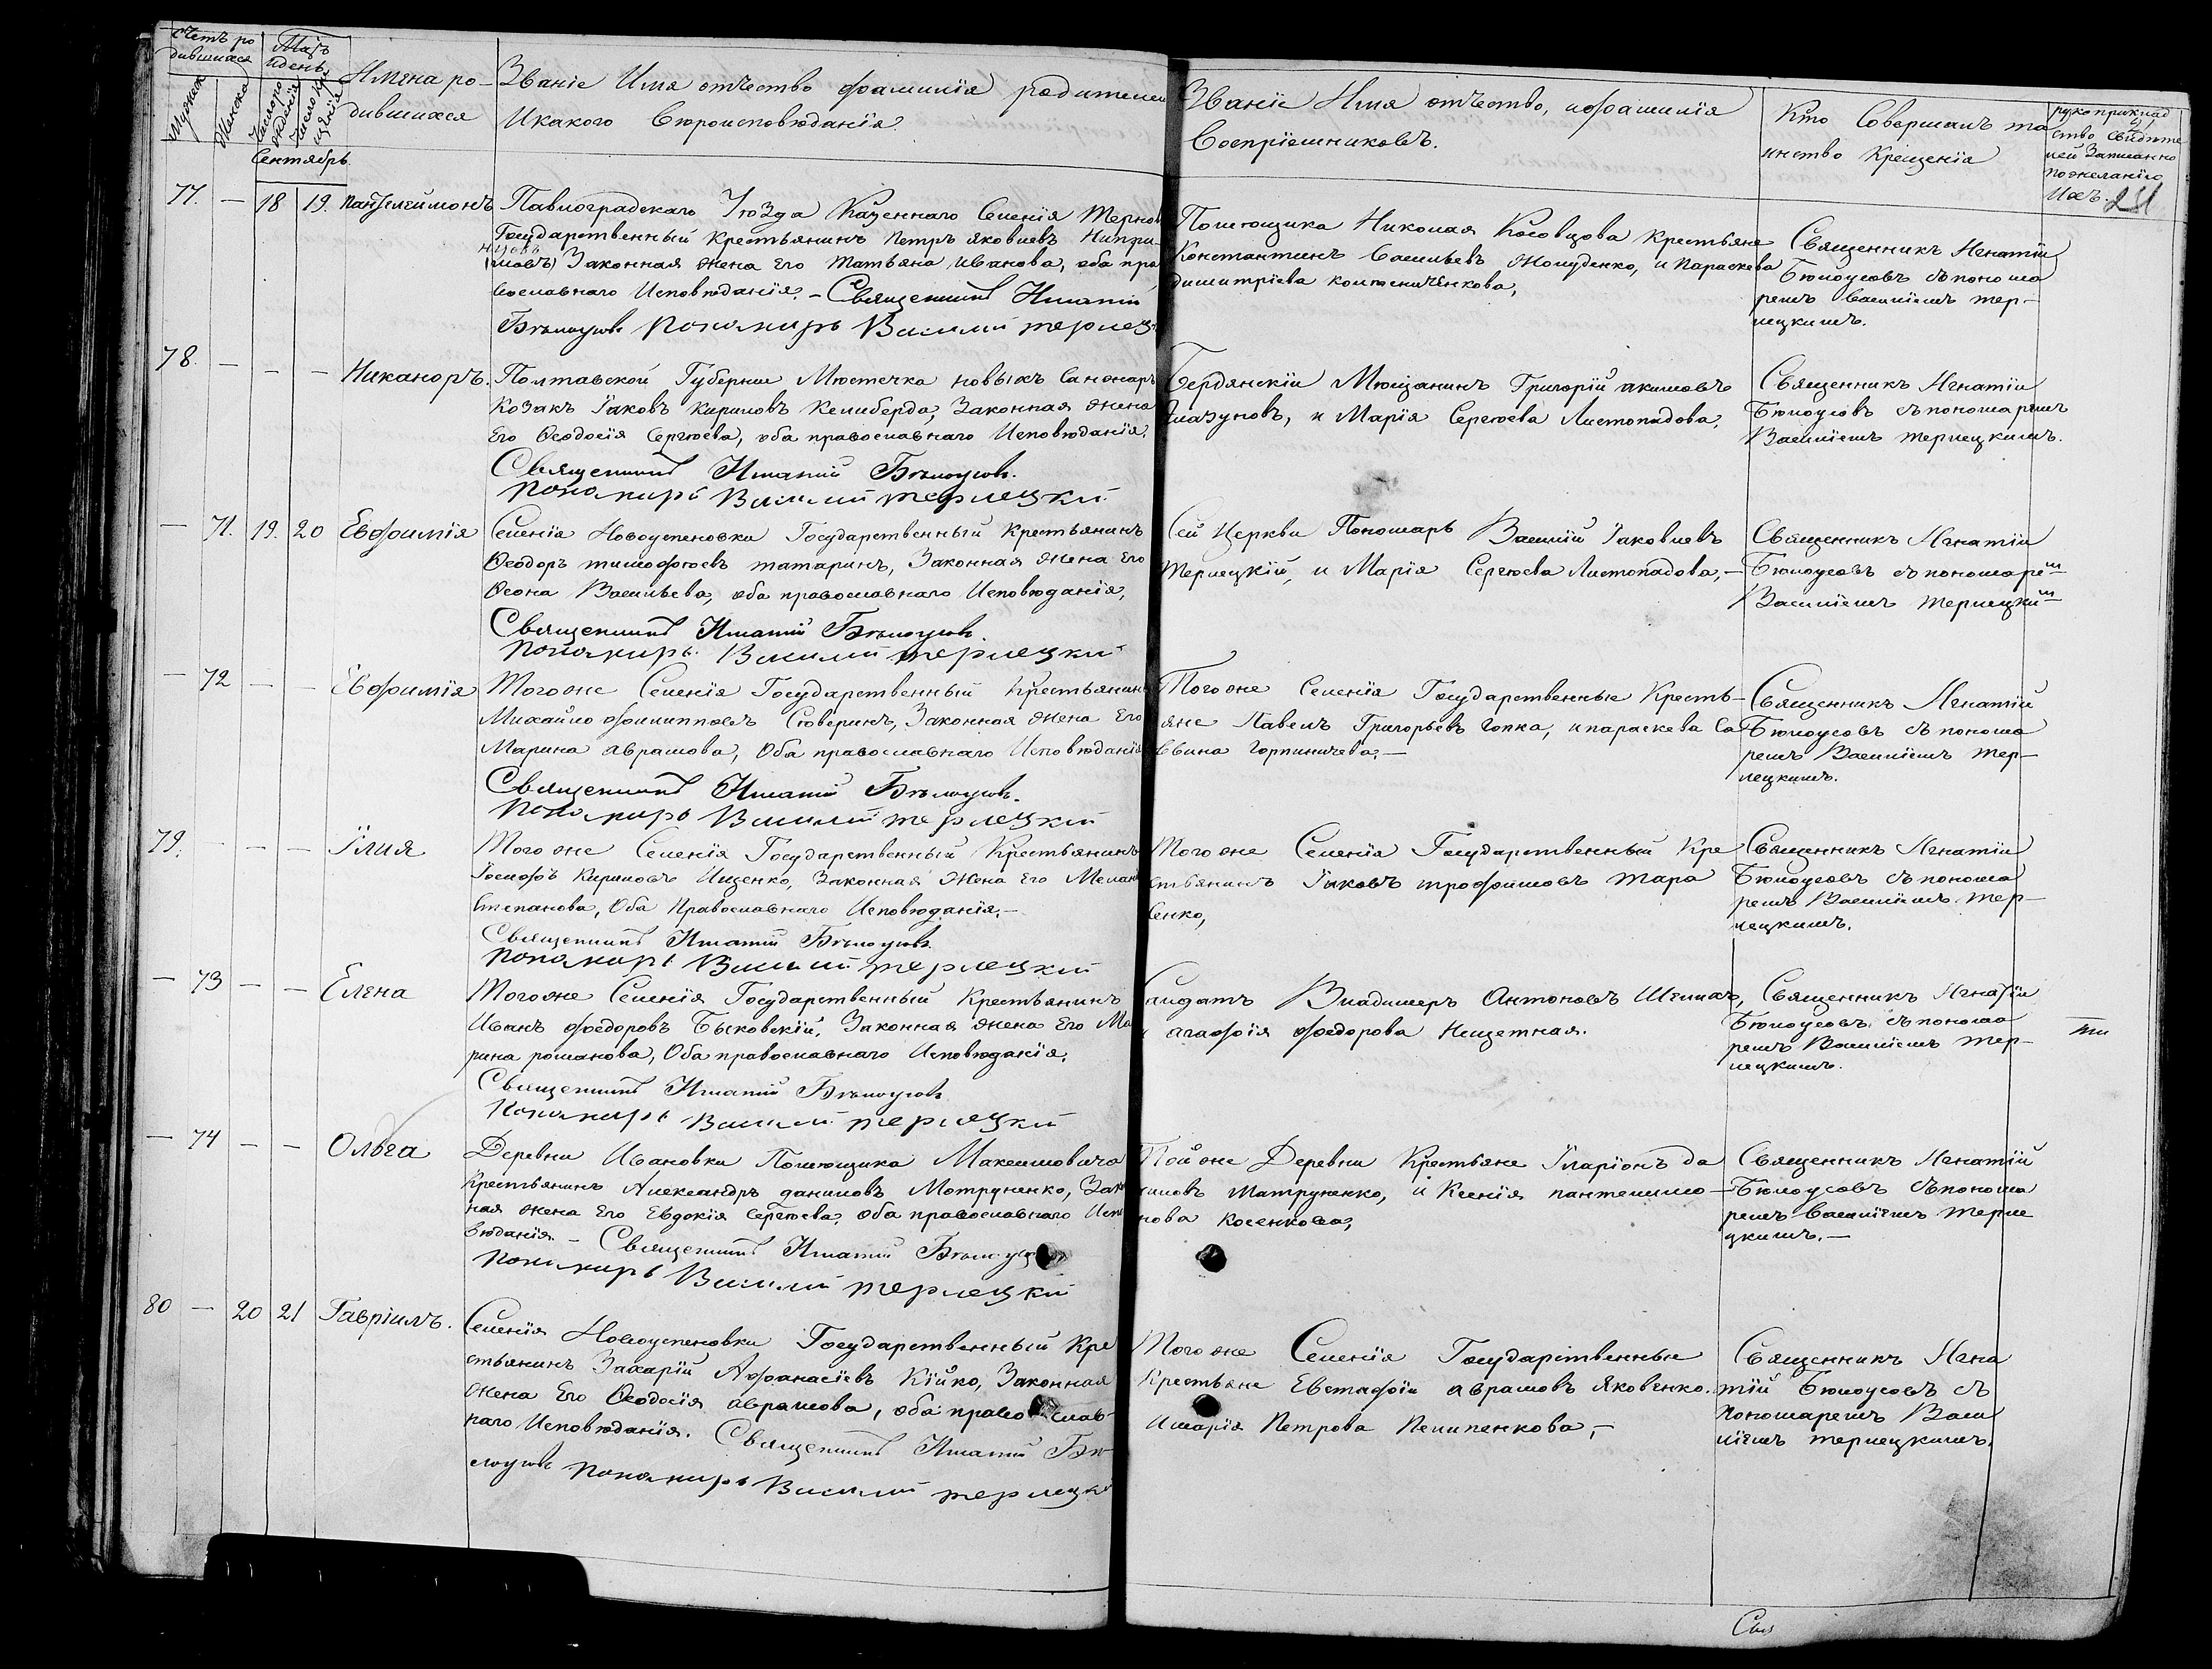 Счетъ ро
дившихся
Мужеск
Женска
Мц̃ъ
идень
Число ро
жденія
Число кре
щенія
Имена ро-
дившихся
Званіе Имя отчество фамилія родителеи
Икакого Вѣроисповѣданія.
Званіе Имя отчество, ифамилія
Воспріемниковъ.
Кто Совершалъ та
инство Крещенія
рукоприклад
ство Свидѣте
лей Записанно
пожеланію
Ихъ.
Сентябрь
77. — 18 19. Пантелеимонъ
Павлоградскаго Уѣзда Казеннаго Селенія Тернов
Государственный Крестьянинъ Петръ Яковлевъ
Законная жена Его Татьяна Иванова, оба пра
вославнаго Исповѣданія. — Священникъ Игнатій
Бѣлоусовъ Пономарь Василій Терлец
Помѣщика Николая Косовцова Крестьяне
Константинъ Васильевъ и Параскева
Димитріева
Священникъ Игнатіи
Бѣлоусовъ съ понома
ремъ Василіемъ Тер—
лецкимъ.
78. — — — Никаноръ.
Полтавской Губерніи Мѣстечка новыхъ Санжаръ
Козакъ Іаковъ Кириловъ Келиберда, Законная жена
Его Ѳеодосія Сергѣева, оба православнаго Исповѣданія.
Священникъ Игнатій Бѣлоусовъ.
Пономарь Василій Терлецкій
Бердянскіи Мѣщанинъ Григорій акимовъ
Глазуновъ, и Марія Сергѣева Листопадова.
Священникъ Игнатіи
Бѣлоусовъ съ пономаремъ
Василіемъ Терлецкимъ.
— 71. 19. 20 Евфимія
Селенія Новоуспеновки Государственный Крестьянинъ
Ѳеодоръ тимофѣевъ татаринъ, Законная жена Его
Васильева, оба православнаго Исповѣданія,
Священникъ Игнатій Бѣлоусовъ.
Пономарь Василій Терлецкій
Сей Церкви Пономарь Василій Іаковлевъ
Терлецкій, и Марія Сергѣева Листопадова, —
Священникъ Игнатіи
Бѣлоусовъ съ пономарем
Василіемъ Терлецким
— 72 — — Евфимія
Тогоже Селенія Государственный Крестьянин
Михайло филипповъ Сѣверинъ, Законная жена Его
Марина аврамова, Оба православнаго Исповѣданія
Священникъ Игнатій Бѣлоусовъ.
Пономарь Василій Терлецкій
Тогоже Селенія Государственные Кресть—
яне Павелъ Григорьевъ Гопка, и параскева Са
ввина Горпиничева, —
Священникъ Игнатій
Бѣлоусовъ съ понома
ремъ Василіемъ Тер—
лецкимъ.
79. — — — Їлия
Того же Селенія Государственный Крестьянинъ
Іосифъ Кириловъ Ищенко, Законная Жена Его Мелані
Степанова, Оба Православнаго Исповѣданія. —
Священникъ Игнатій Бѣлоусовъ
Пономарь Василій Терлецкій
Того же Селенія Государственный Кре
стьянинъ Іаковъ трофимовъ Тара
сенко,
Священникъ Игнатіи
Бѣлоусовъ съ понома
ремъ Василіемъ Тер—
лецкимъ.
— 73 — — Елена
Тогоже Селенія Государственный Крестьянинъ
Иванъ федоровъ Быковскій, Законная жена Его Ма
рина романова, Оба православнаго Исповѣданія,
Священникъ Игнатій Бѣлоусовъ
Пономарь Василій Терлецкій
Салдатъ Владимеръ Антоновъ
и агафія федорова Нещетная.
Священникъ Игнатіи
Бѣлоусовъ съ понома
ремъ Василіемъ Тер—
лецкимъ.
— 74 — — Ольга
Деревни Ивановки Помѣщика Максимовича
Крестьянинъ Александръ даниловъ Мотруненко, Закон
ная жена Его Евдокія Сергѣева, оба православнаго Испо
вѣданія. — Священникъ Игнатій Бѣлоусовъ
Пономарь Василій Терлецкій
Той же Деревни Крестьяне Їларіонъ да
ниловъ Матруненко, и Ксенія пантелимо—
нова Косенкова,
Священникъ Игнатій
Бѣлоусовъ съ понома
ремъ Василіемъ Терле
цкимъ. —
80 — 20 21 Гавріилъ.
Селенія Новоуспеновки Государственный Кре
стьянинъ Захарій Афанасіевъ Кійко, Законная
Жена Его Ѳеодосія аврамова, оба православ-
наго Исповѣданія. Священникъ Игнатій Бѣ
лоусовъ Пономарь Василій Терлецкі
Того же Селенія Государственные
Крестьяне Евстафіи аврамовъ Яковенко.
Имарія Петрова Пелипенкова, —
Священникъ Игна
тій Бѣлоусовъ съ
Пономаремъ Васи
ліемъ Терлецкимъ.